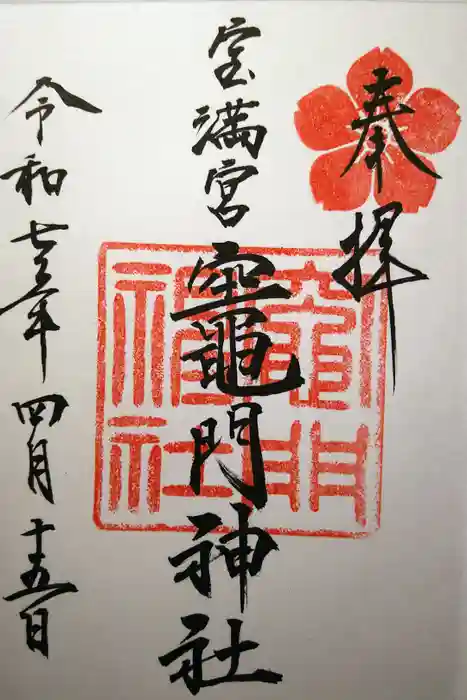 奉拝
宝満宮
竈門神社
竈門神社
令和七年四月十五日